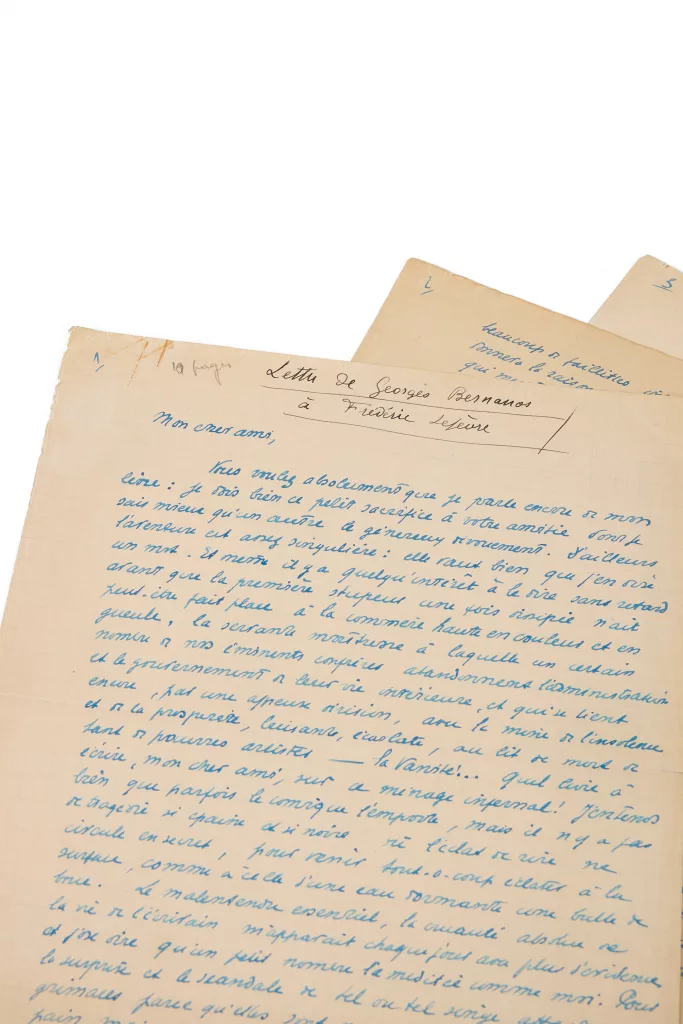 1
10 pages
Lettre de Georges Bernanos
à Frédéric Lefèvre
Mon cher ami,
Vous voulez absolument que je parle encore de mon
livre : je dois bien ce petit sacrifice à votre amitié dont je
sais mieux qu'un autre le généreux dévouement. D'ailleurs
l'aventure est assez singulière : elle vaut bien que j'en dise
un mot. Et même il y a quelqu'intérêt à le dire sans retard
avant que la première stupeur une fois dissipée n'ait
peut-être fait place à la commère haute en couleurs et en
gueule, la servante maîtresse à laquelle un certain
nombre de nos éminents confrères abandonnent l'administration
et le gouvernement de leur vie intérieure, et qui se tient
encore, par une affreuse dérision, avec la mine de l'insolence
et de la prospérité, luisante, écarlate, au lit de mort de
tant de pauvres artistes — la Vanité!... Quel livre à
écrire, mon cher ami, sur ce ménage infernal! J'entends
bien que parfois le comique l'emporte, mais il n'y a pas
de tragédie si épaisse et si noire où l'éclat de rire ne
circule en secret, pour venir tout-à-coup éclater à la
surface, comme à celle d'une eau dormante une bulle de
boue. Le malentendu essentiel, la cruauté absolue de
la vie de l'écrivain m'apparaît chaque jour avec plus d'évidence
et j'ose dire qu'un petit nombre l'a médité comme moi. Pour
la surprise et le scandale de tel ou tel singe
grimaces parce qu'elles sont
pain
2
beaucoup de faillites
donnera la raison
qui
3